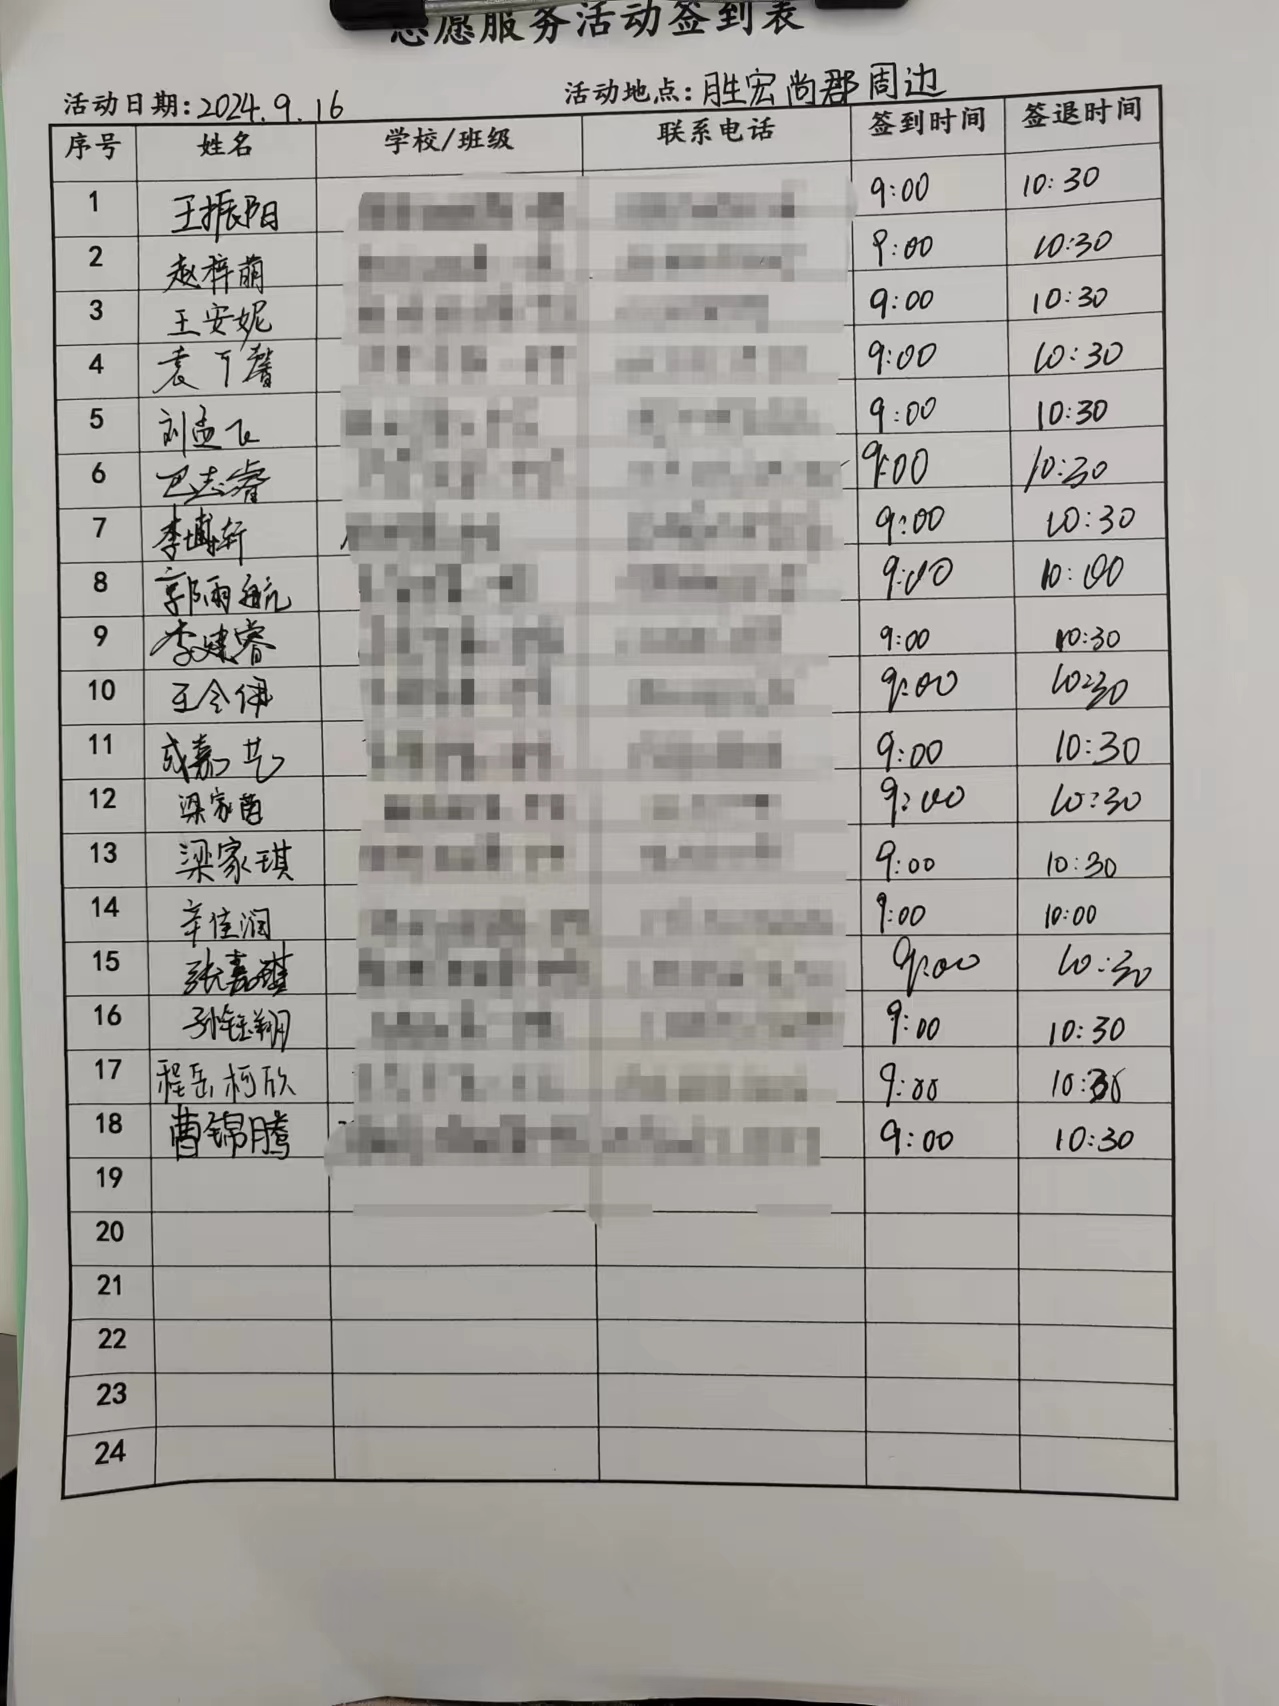 志愿服务活动签到表
活动日期:2024.9.16 活动地点:胜宏尚郡周边
序号 姓名 学校/班级 联系电话 签到时间 签退时间
1 王振阳 9:00 10:30
2 赵梓萌 9:00 10:30
3 王安妮 9:00 10:30
4 袁丁馨 9:00 10:30
5 刘孟飞 9:00 10:30
6 巴志睿 9:00 10:30
7 李博轩 9:00 10:30
8 郭雨航 9:00 10:00
9 李建睿 9:00 10:30
10 王令伊 9:00 10:30
11 成嘉艺 9:00 10:30
12 梁家茵 9:00 10:30
13 梁家琪 9:00 10:30
14 辛佳润 9:00 10:00
15 张嘉祺 9:00 10:30
16 孙钰翔 9:00 10:30
17 程岳柯欣 9:00 10:30
18 曹锦腾 9:00 10:30
19
20
21
22
23
24